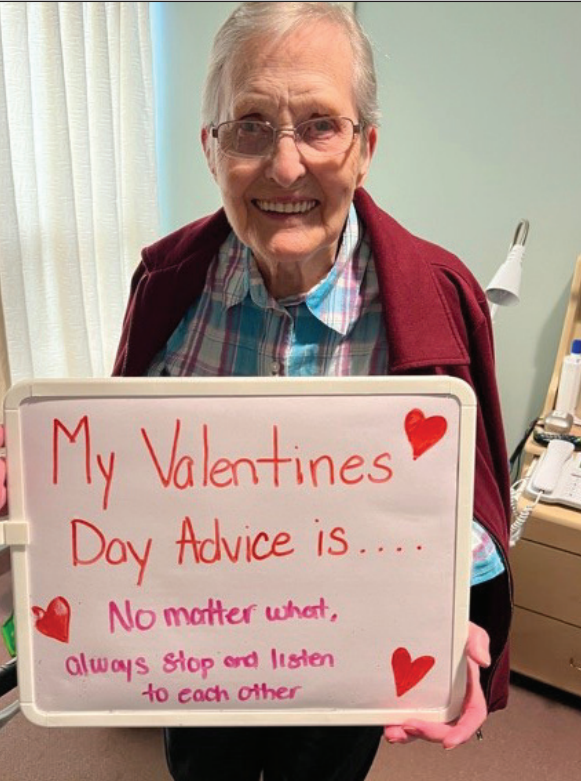 My Valentines
Day Advice is....
No matter what,
always stop and listen
to each other